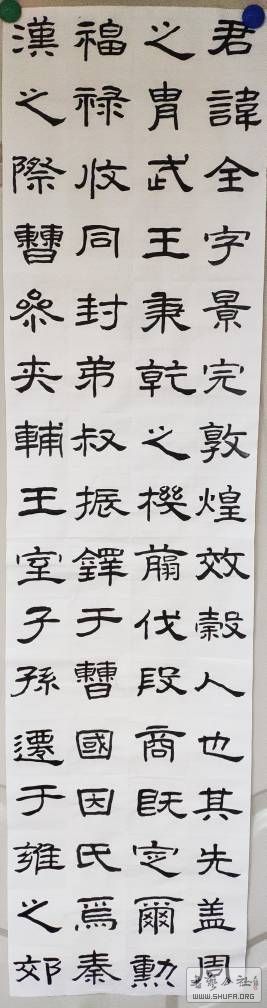 君諱全字景完敦煌效穀人也其先盖周
之胄武王秉乾之機翦伐殷商既定爾勳
福禄攸同封弟叔振鐸于曹國因氏焉秦
漢之際曹參夾輔王室子孫遷于雍之郊
书艺公社
WWW.SHUFA.ORG